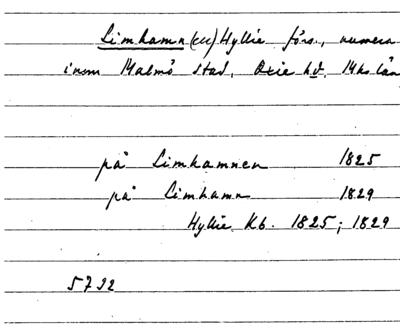 Limhamn (cu) Hyllie förs., numera
inom Malmö stad, Oxie hd. Mhs län
på Limhamnen 1825
på Limhamn 1829
Hyllie Kb. 1825; 1829
5732